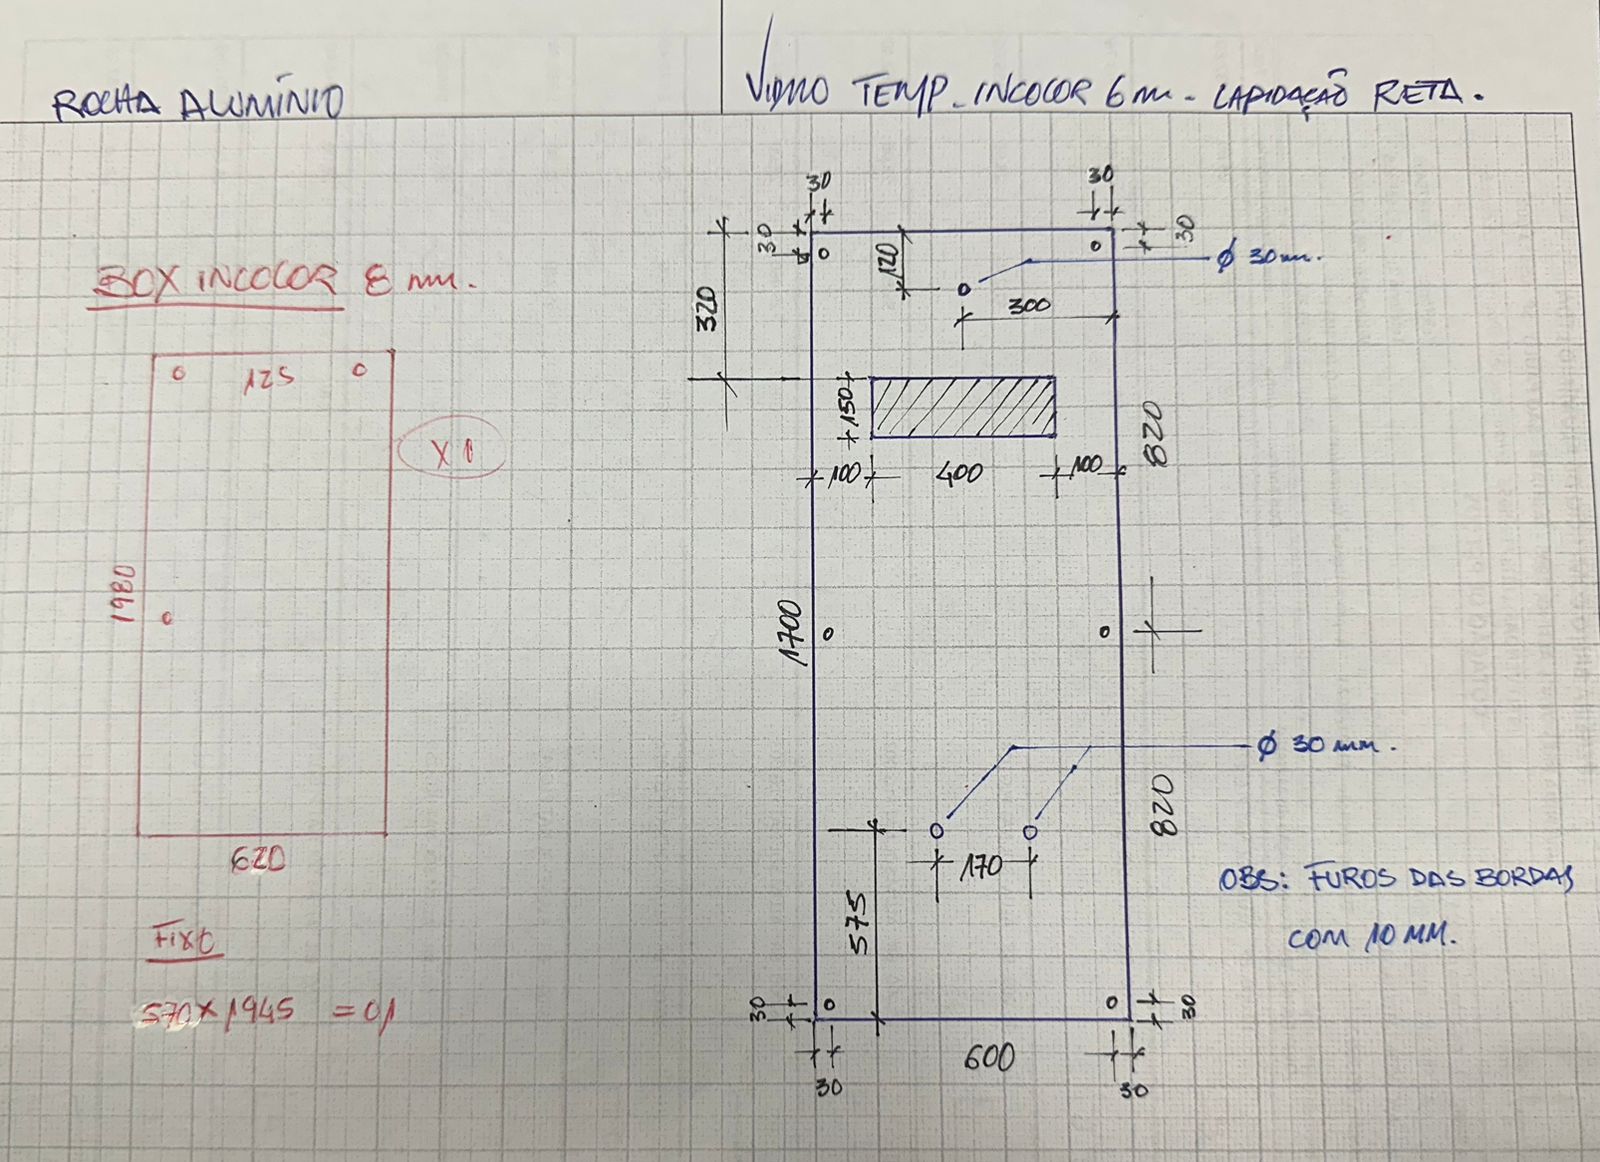 ROCHA ALUMÍNIO
VIDRO TEMP. INCOLOR 6 mm - LAPIDAÇÃO RETA.
BOX INCOLOR 8 mm.
125
X 1
1980
620
FIXO
570 x 1945 = 01
30
30
30
30
120
Ø 30 mm.
300
320
150
100
400
100
820
1700
Ø 30 mm.
820
170
575
OBS: FUROS DAS BORDAS
COM 10 MM.
30
30
600
30
30